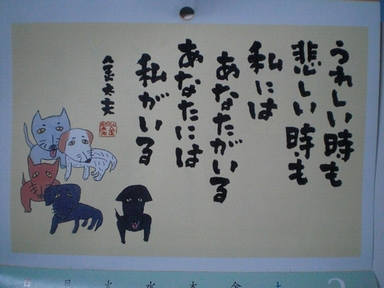 うれしい時も
悲しい時も
私には
あなたがいる
あなたには
私がいる
日 月 火 水 木 金 土